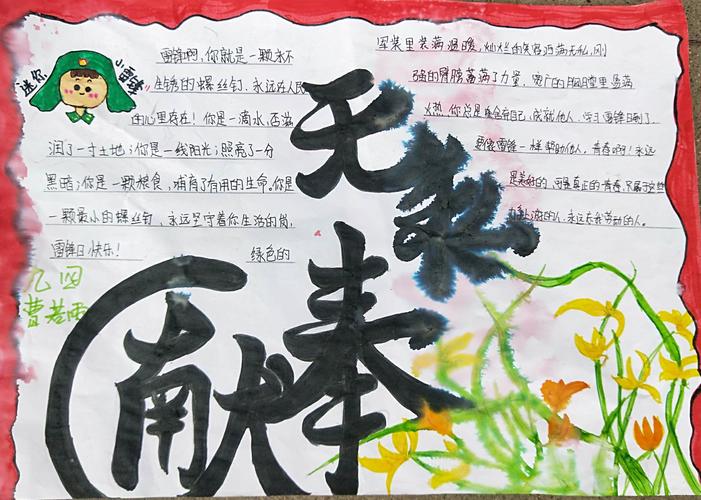 迷你小雷锋
雷锋啊,你就是一颗永不
生锈的螺丝钉,永远在人民
的心里存在!你是一滴水,否滋
润了一寸土地;你是一线阳光;照亮了一分
黑暗;你是一颗粮食,哺育了有用的生命。你是
一颗最小的螺丝钉,永远坚守着你生活的岗,
雷锋日快乐!
绿色的
军装里装满温暖,灿烂的笑容洒满无私,刚
强的臂膀蓄满了力量,宽广的胸膛里盈满
火热,你总是舍自己,成就他人,学习雷锋日到了
要像雷锋一样帮助他人,青春啊!永远
是美好的,可是真正的青春,只属于这些
力争上游的人,永远忘我劳动的人。
无私
奉献
九四
曹若雨